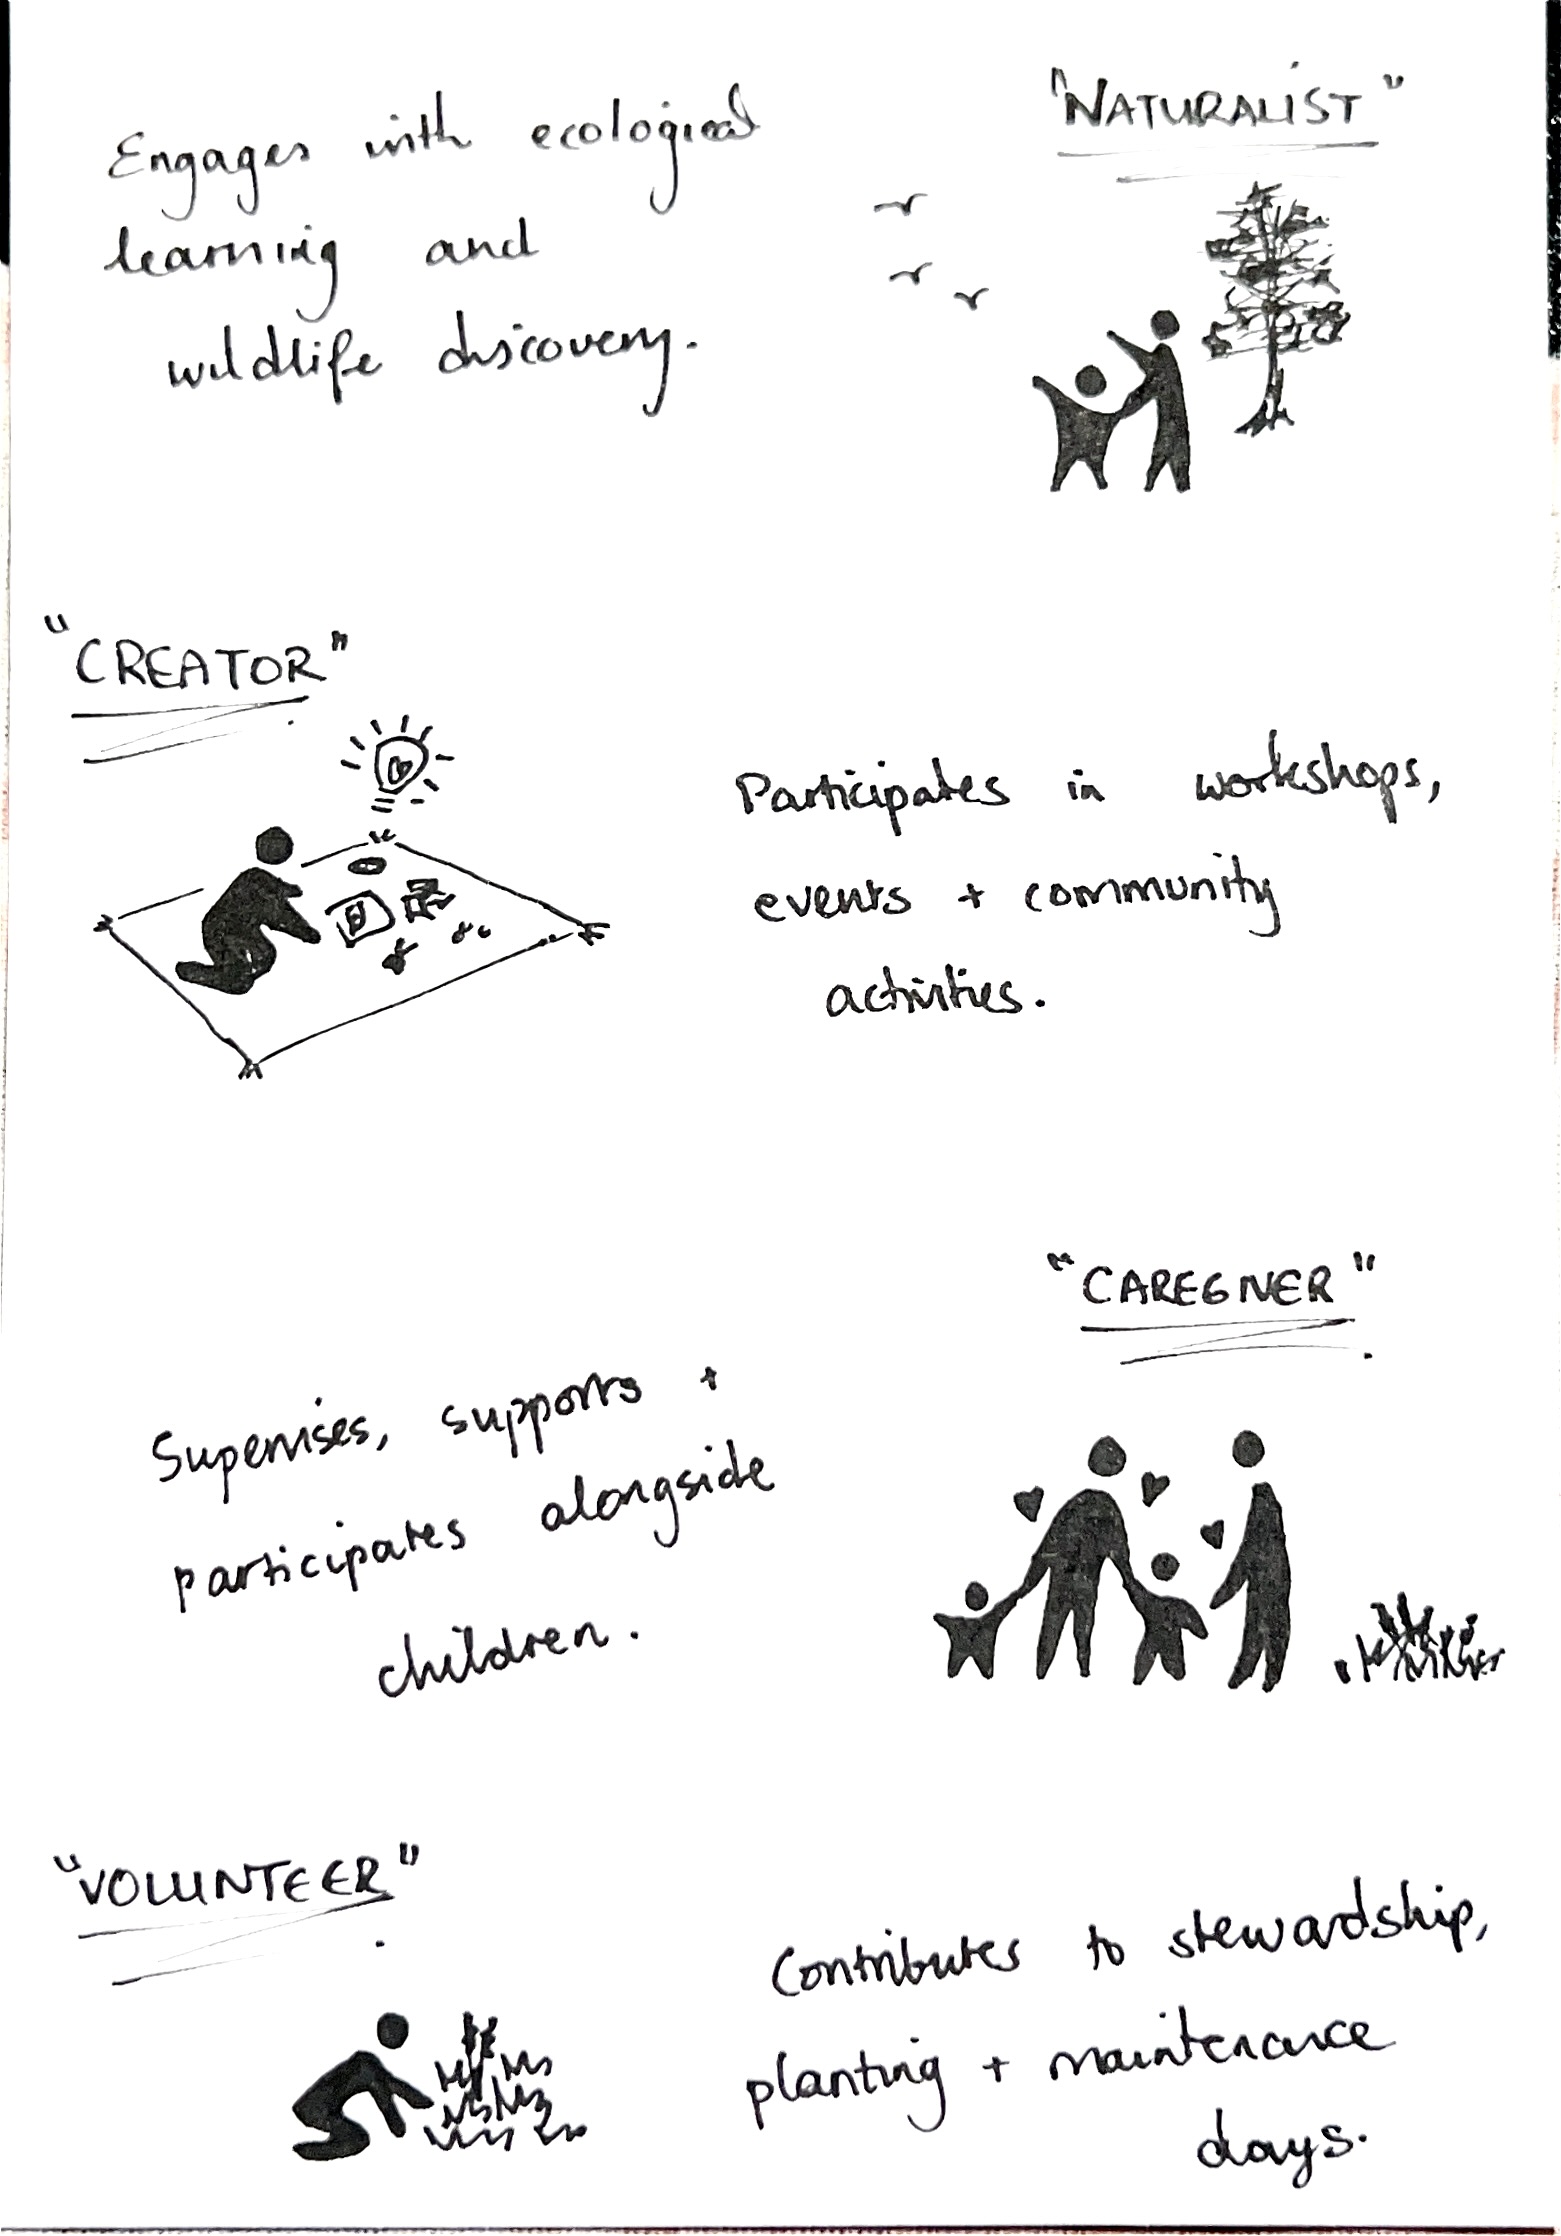 "NATURALIST"
Engages with ecological
learning and
wildlife discovery.
"CREATOR"
Participates in workshops,
events + community
activities.
"CAREGIVER"
Supervises, supports +
participates alongside
children.
"VOLUNTEER"
Contributes to stewardship,
planting + maintenance
days.